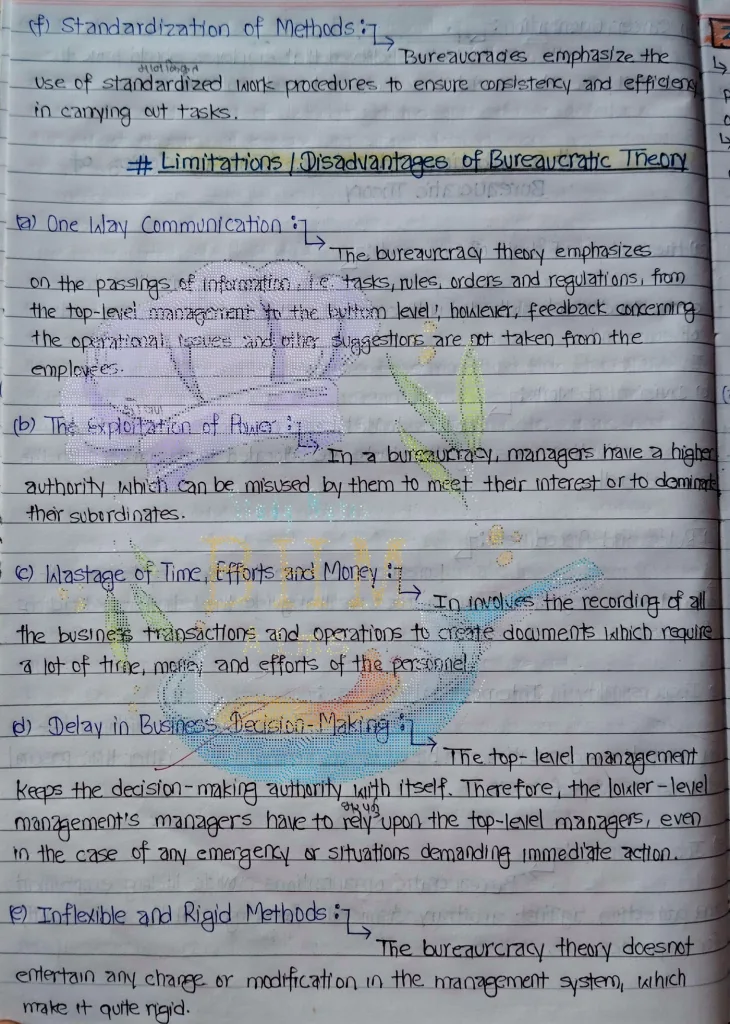 (f) Standardization of Methods :-
Bureaucracies emphasize the
use of standardized work procedures to ensure consistency and efficiency
in carrying out tasks.
# Limitations / Disadvantages of Bureaucratic Theory
(a) One Way Communication :-
The bureaurcracy theory emphasizes
on the passings of information i.e. tasks, rules, orders and regulations, from
the top-level management to the bottom level; however, feedback concerning
the operational issues and other suggestions are not taken from the
employees.
(b) The Exploitation of Power :-
In a bureaurcracy, managers have a higher
authority which can be misused by them to meet their interest or to dominate
their subordinates.
(c) Wastage of Time, Efforts and Money :-
In involves the recording of all
the business transactions and operations to create documents which require
a lot of time, money and efforts of the personnel.
BHM
(d) Delay in Business Decision-Making :-
The top-level management
keeps the decision-making authority with itself. Therefore, the lower-level
management's managers have to rely upon the top-level managers, even
in the case of any emergency or situations demanding immediate action.
(e) Inflexible and Rigid Methods :-
The bureaurcracy theory doesnot
entertain any change or modification in the management system, which
make it quite rigid.